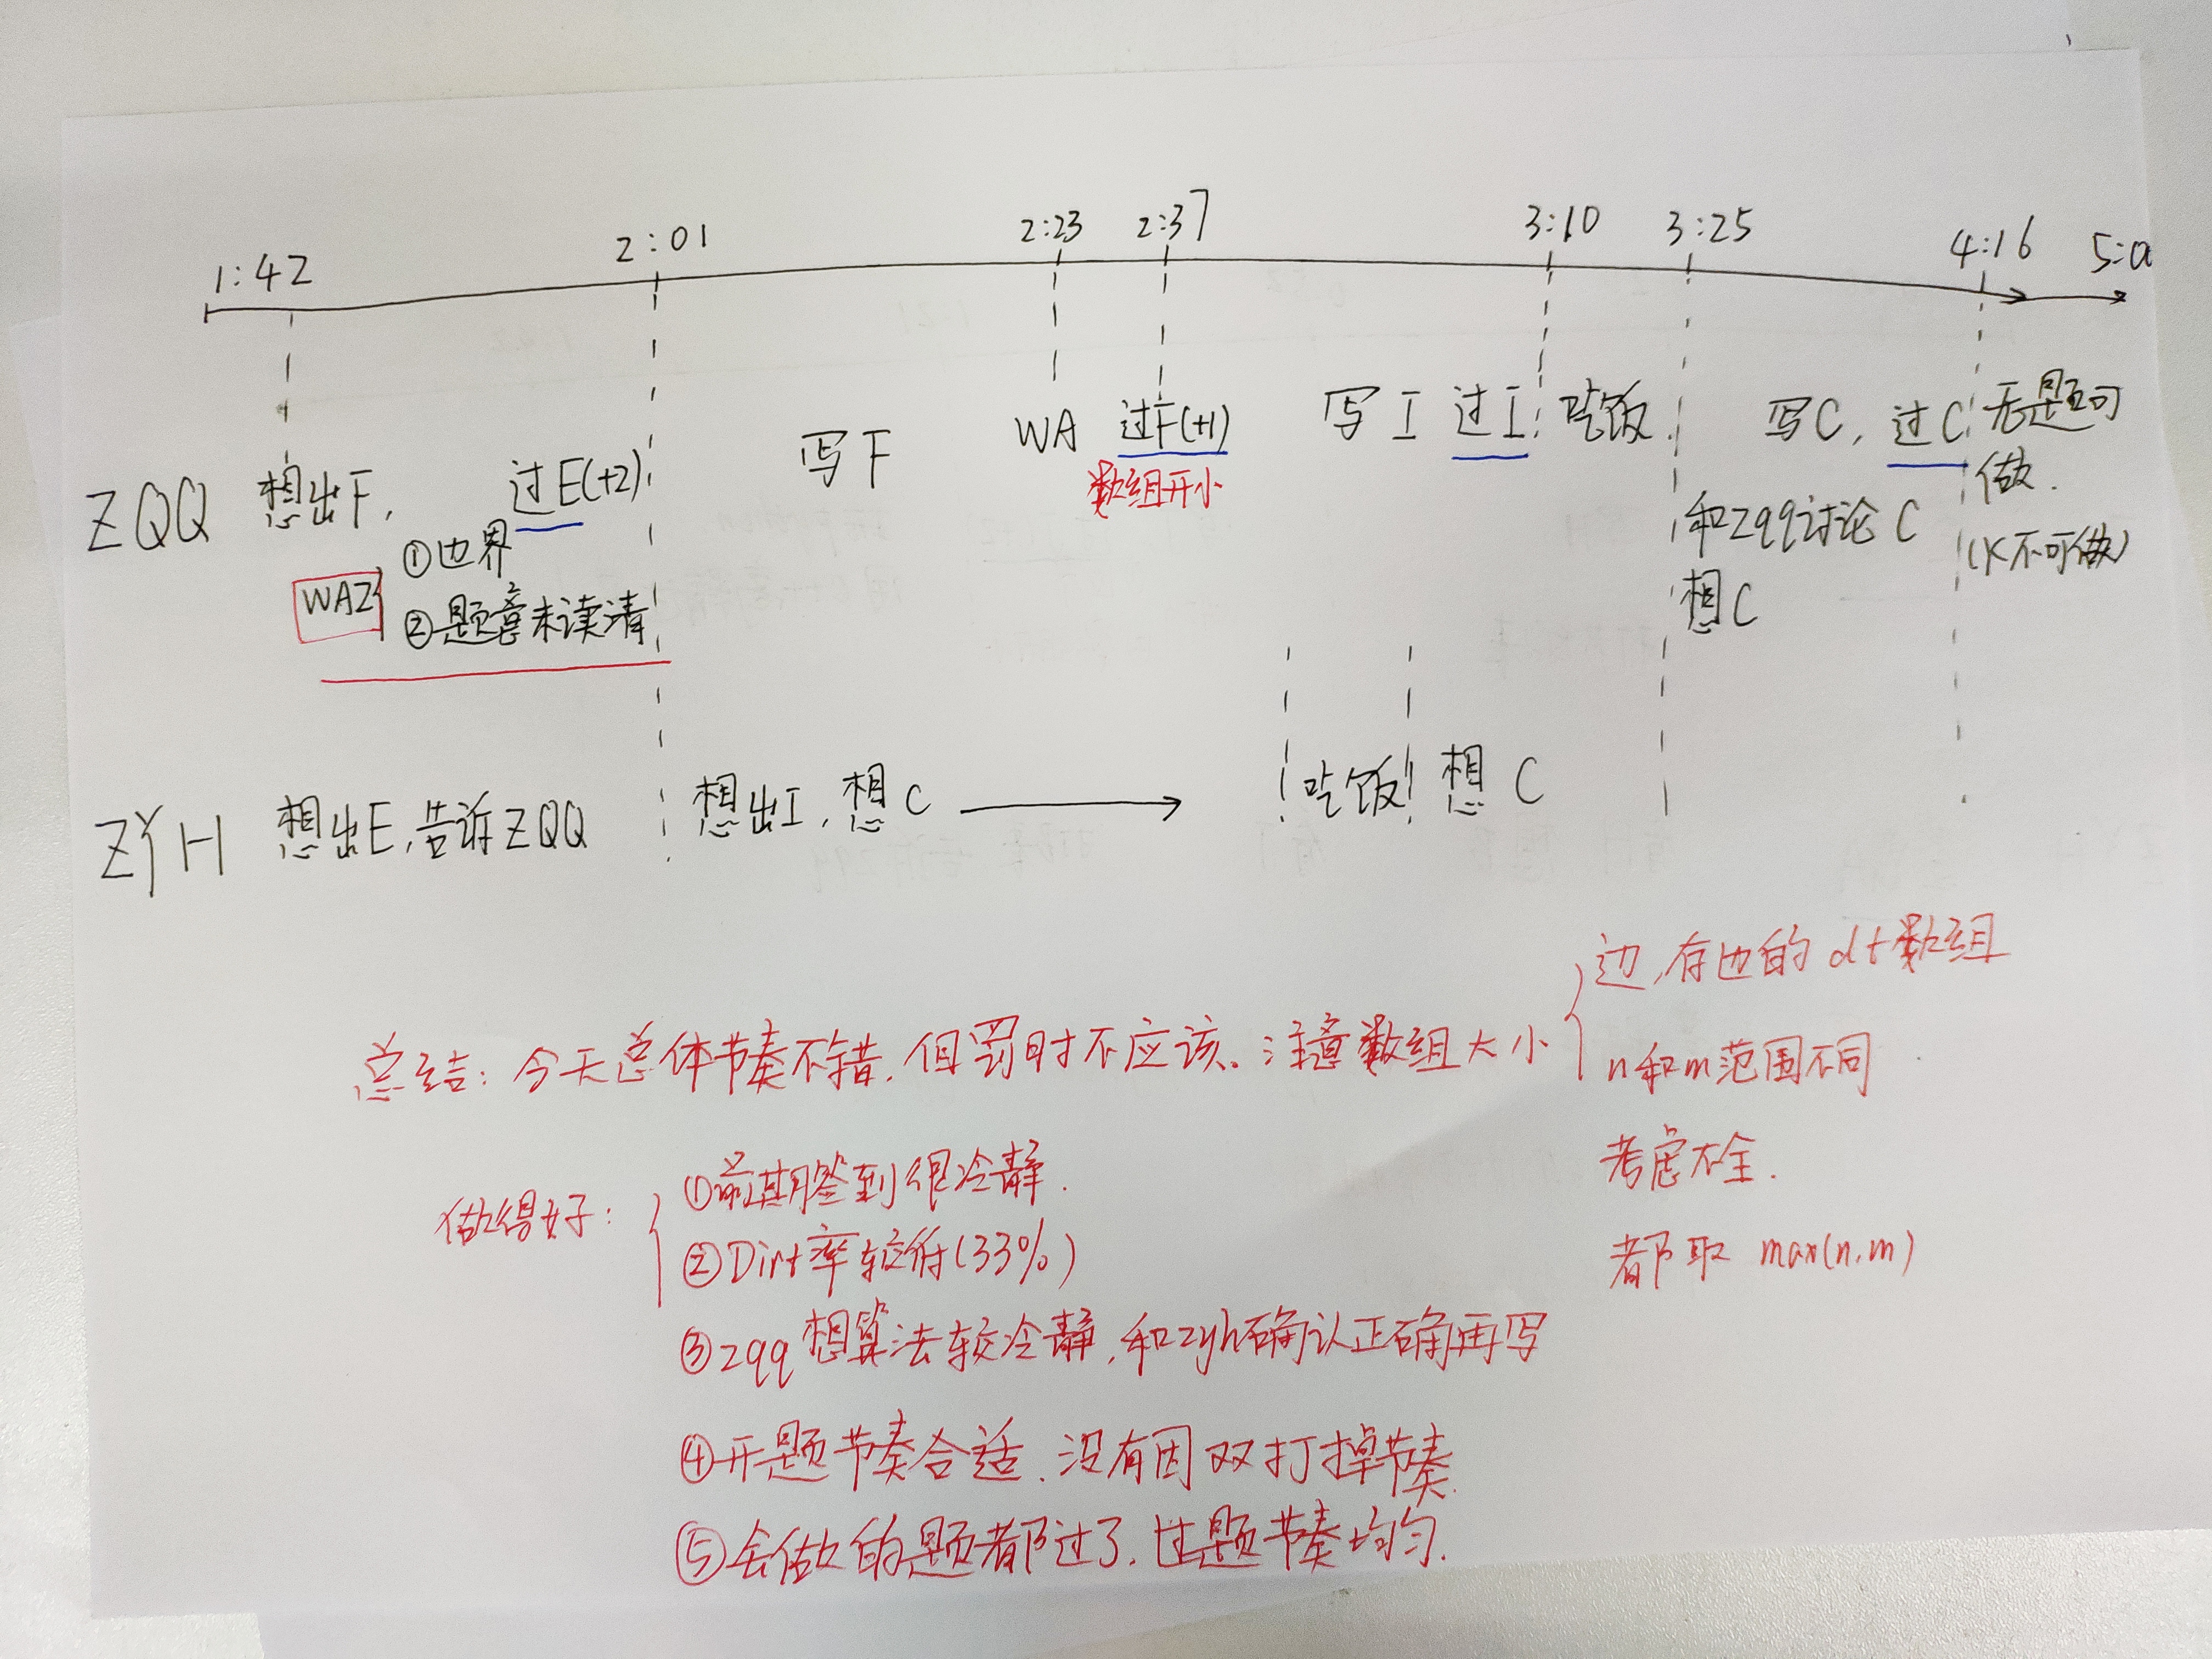 1:42 2:01 2:23 2:37 3:10 3:25 4:16
ZQQ 想出F, 过E(+2) 写F WA 过F(+1) 写I 过I 吃饭 写C, 过C 无题可
做.
(K不可做)
数组开小
①边界
WA2
②题意未读清
和zqq讨论C
想C
ZYH 想出E,告诉ZQQ 想出I,想C 吃饭 想C
总结:今天总体节奏不错,但罚时不应该。注意数组大小
边,存边的 数组
n和m范围不同
考虑不全.
都取 max(n,m)
做得好:
①前期签到很冷静.
②Dirt率较低(33%)
③zqq想算法较冷静,和zyh确认正确再写
④开题节奏合适,没有因双打掉节奏.
⑤会做的题都过了,过题节奏均匀.